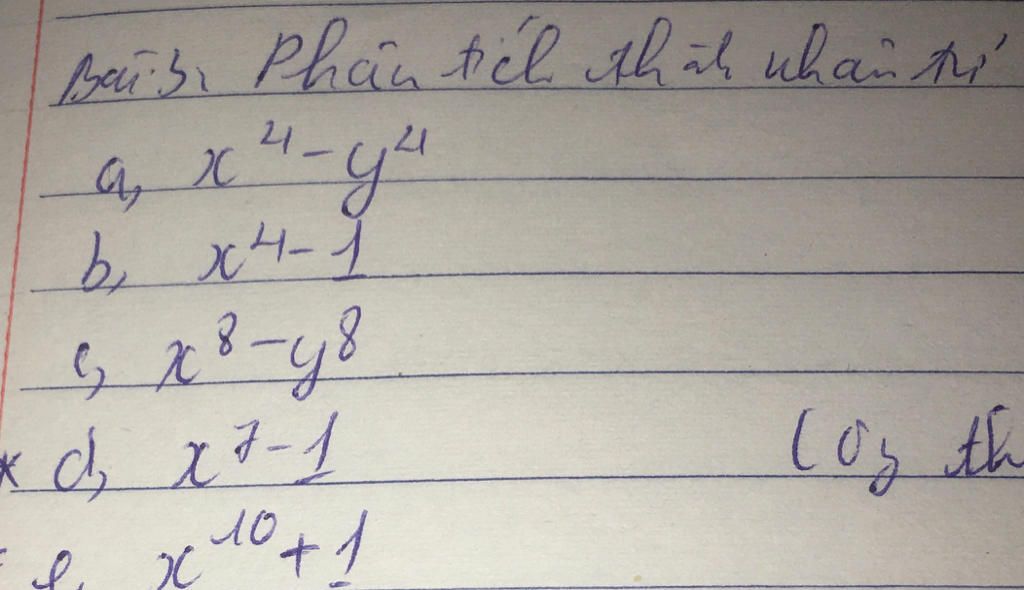 Bài 3: Phân tích thành nhân tử
a, x⁴ - y⁴
b, x⁴ - 1
c, x⁸ - y⁸
* d, x⁷ - 1
e, x¹⁰ + 1